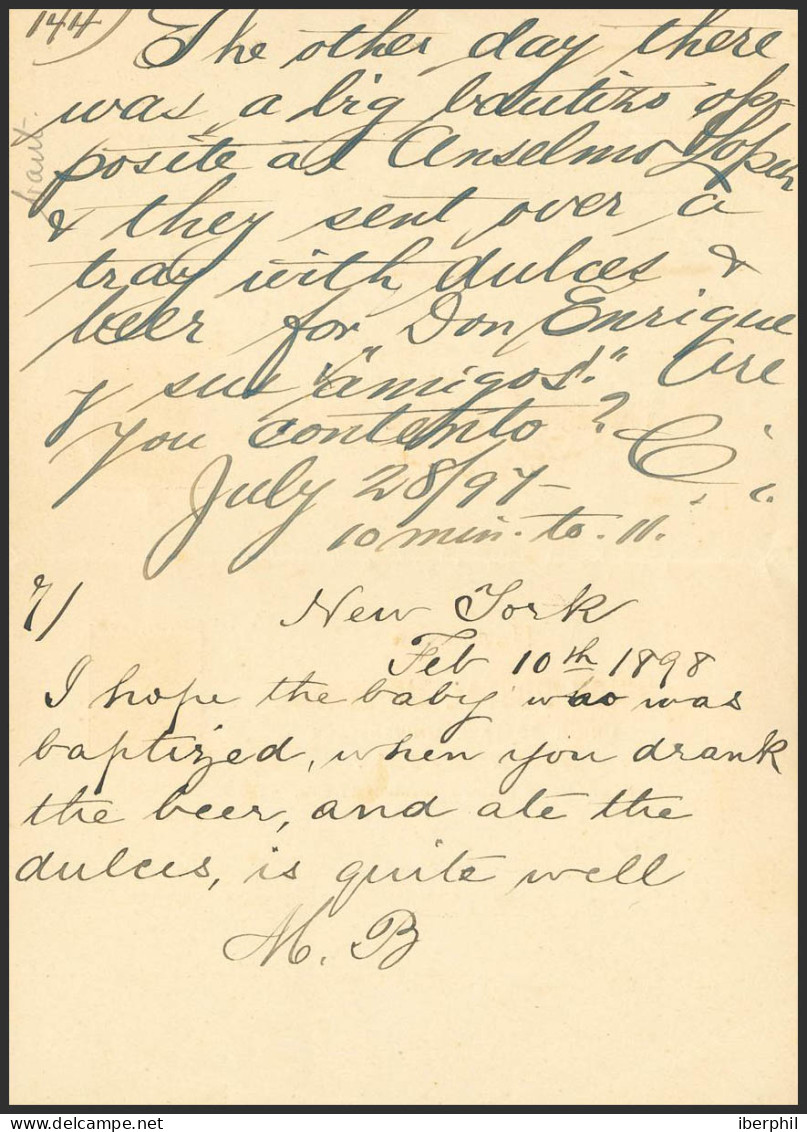 144)
The other day there
was a big bautizo op-
posite at Anselmo Lopez
& they sent over a
tray with dulces &
beer for Don Enrique
y sus "amigos!" Are
you contento? C.
July 28/97-
10 min. to. 11.
7/ New York
Feb 10th 1898
I hope the baby who was
baptized, when you drank
the beer, and ate the
dulces, is quite well
M. B
delcampe.net
iberphil